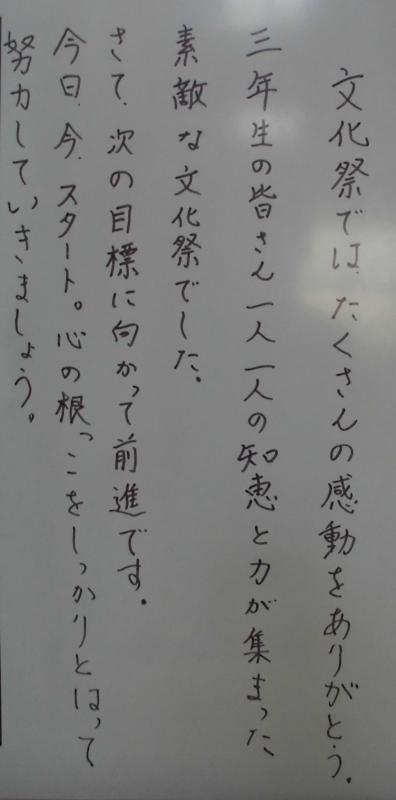 文化祭では、たくさんの感動をありがとう。
三年生の皆さん一人一人の知恵と力が集まった
素敵な文化祭でした。
さて、次の目標に向かって前進です。
今日、今、スタート。心の根っこをしっかりとはって
努力していきましょう。